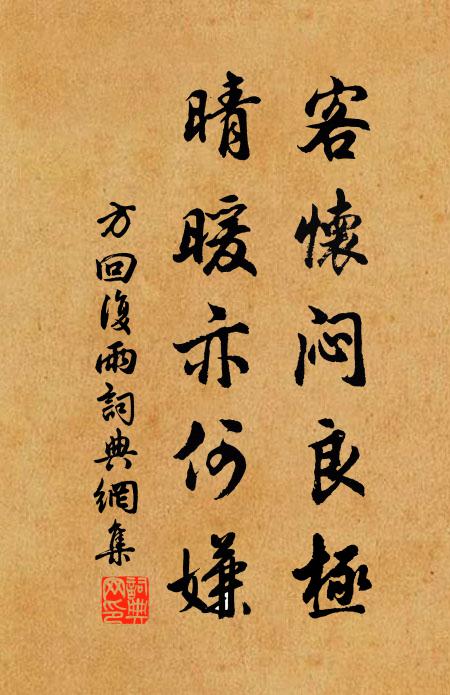 客懷悶良極
晴暖亦何嫌
方回復雨詞典網集
詞典
网印